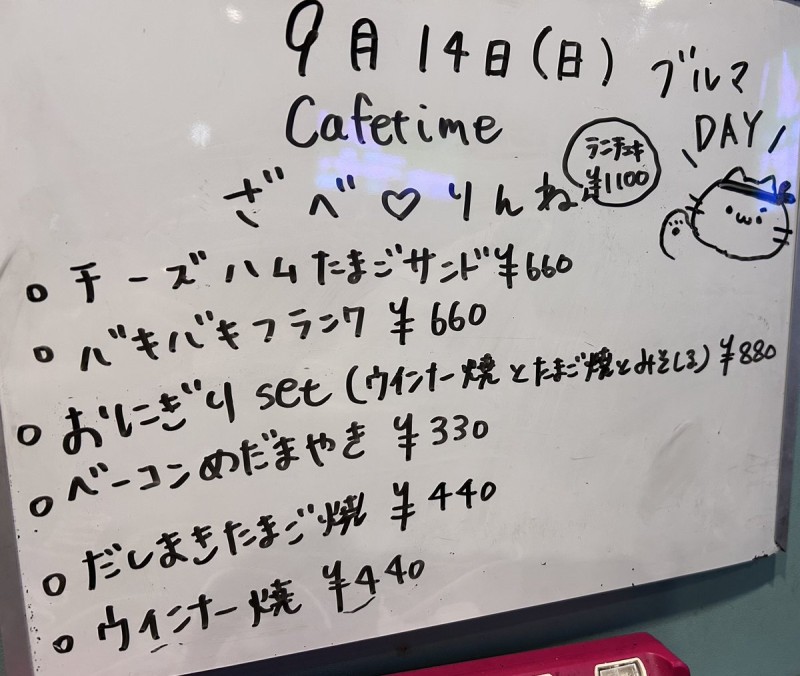 9月14日(日)
ブルマ
DAY
Cafetime
ランチェキ
¥1100
ざべ♡りんね
○ チーズハムたまごサンド ¥660
○ バキバキフランク ¥660
○ おにぎりset (ウインナー焼とたまご焼とみそしる) ¥880
○ ベーコンめだまやき ¥330
○ だしまきたまご焼 ¥440
○ ウインナー焼 ¥440